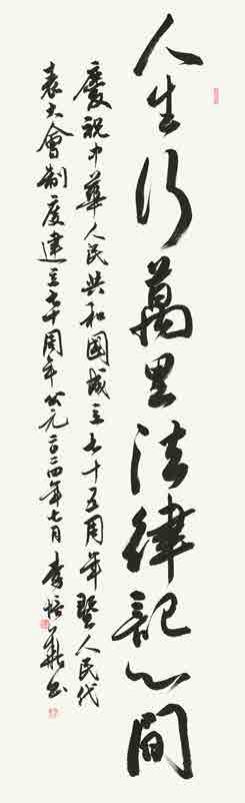 人生行萬里法律記心間
慶祝中華人民共和國成立七十五周年暨人民代
表大會制度建立七十周年公元二〇二四年七月李培義书